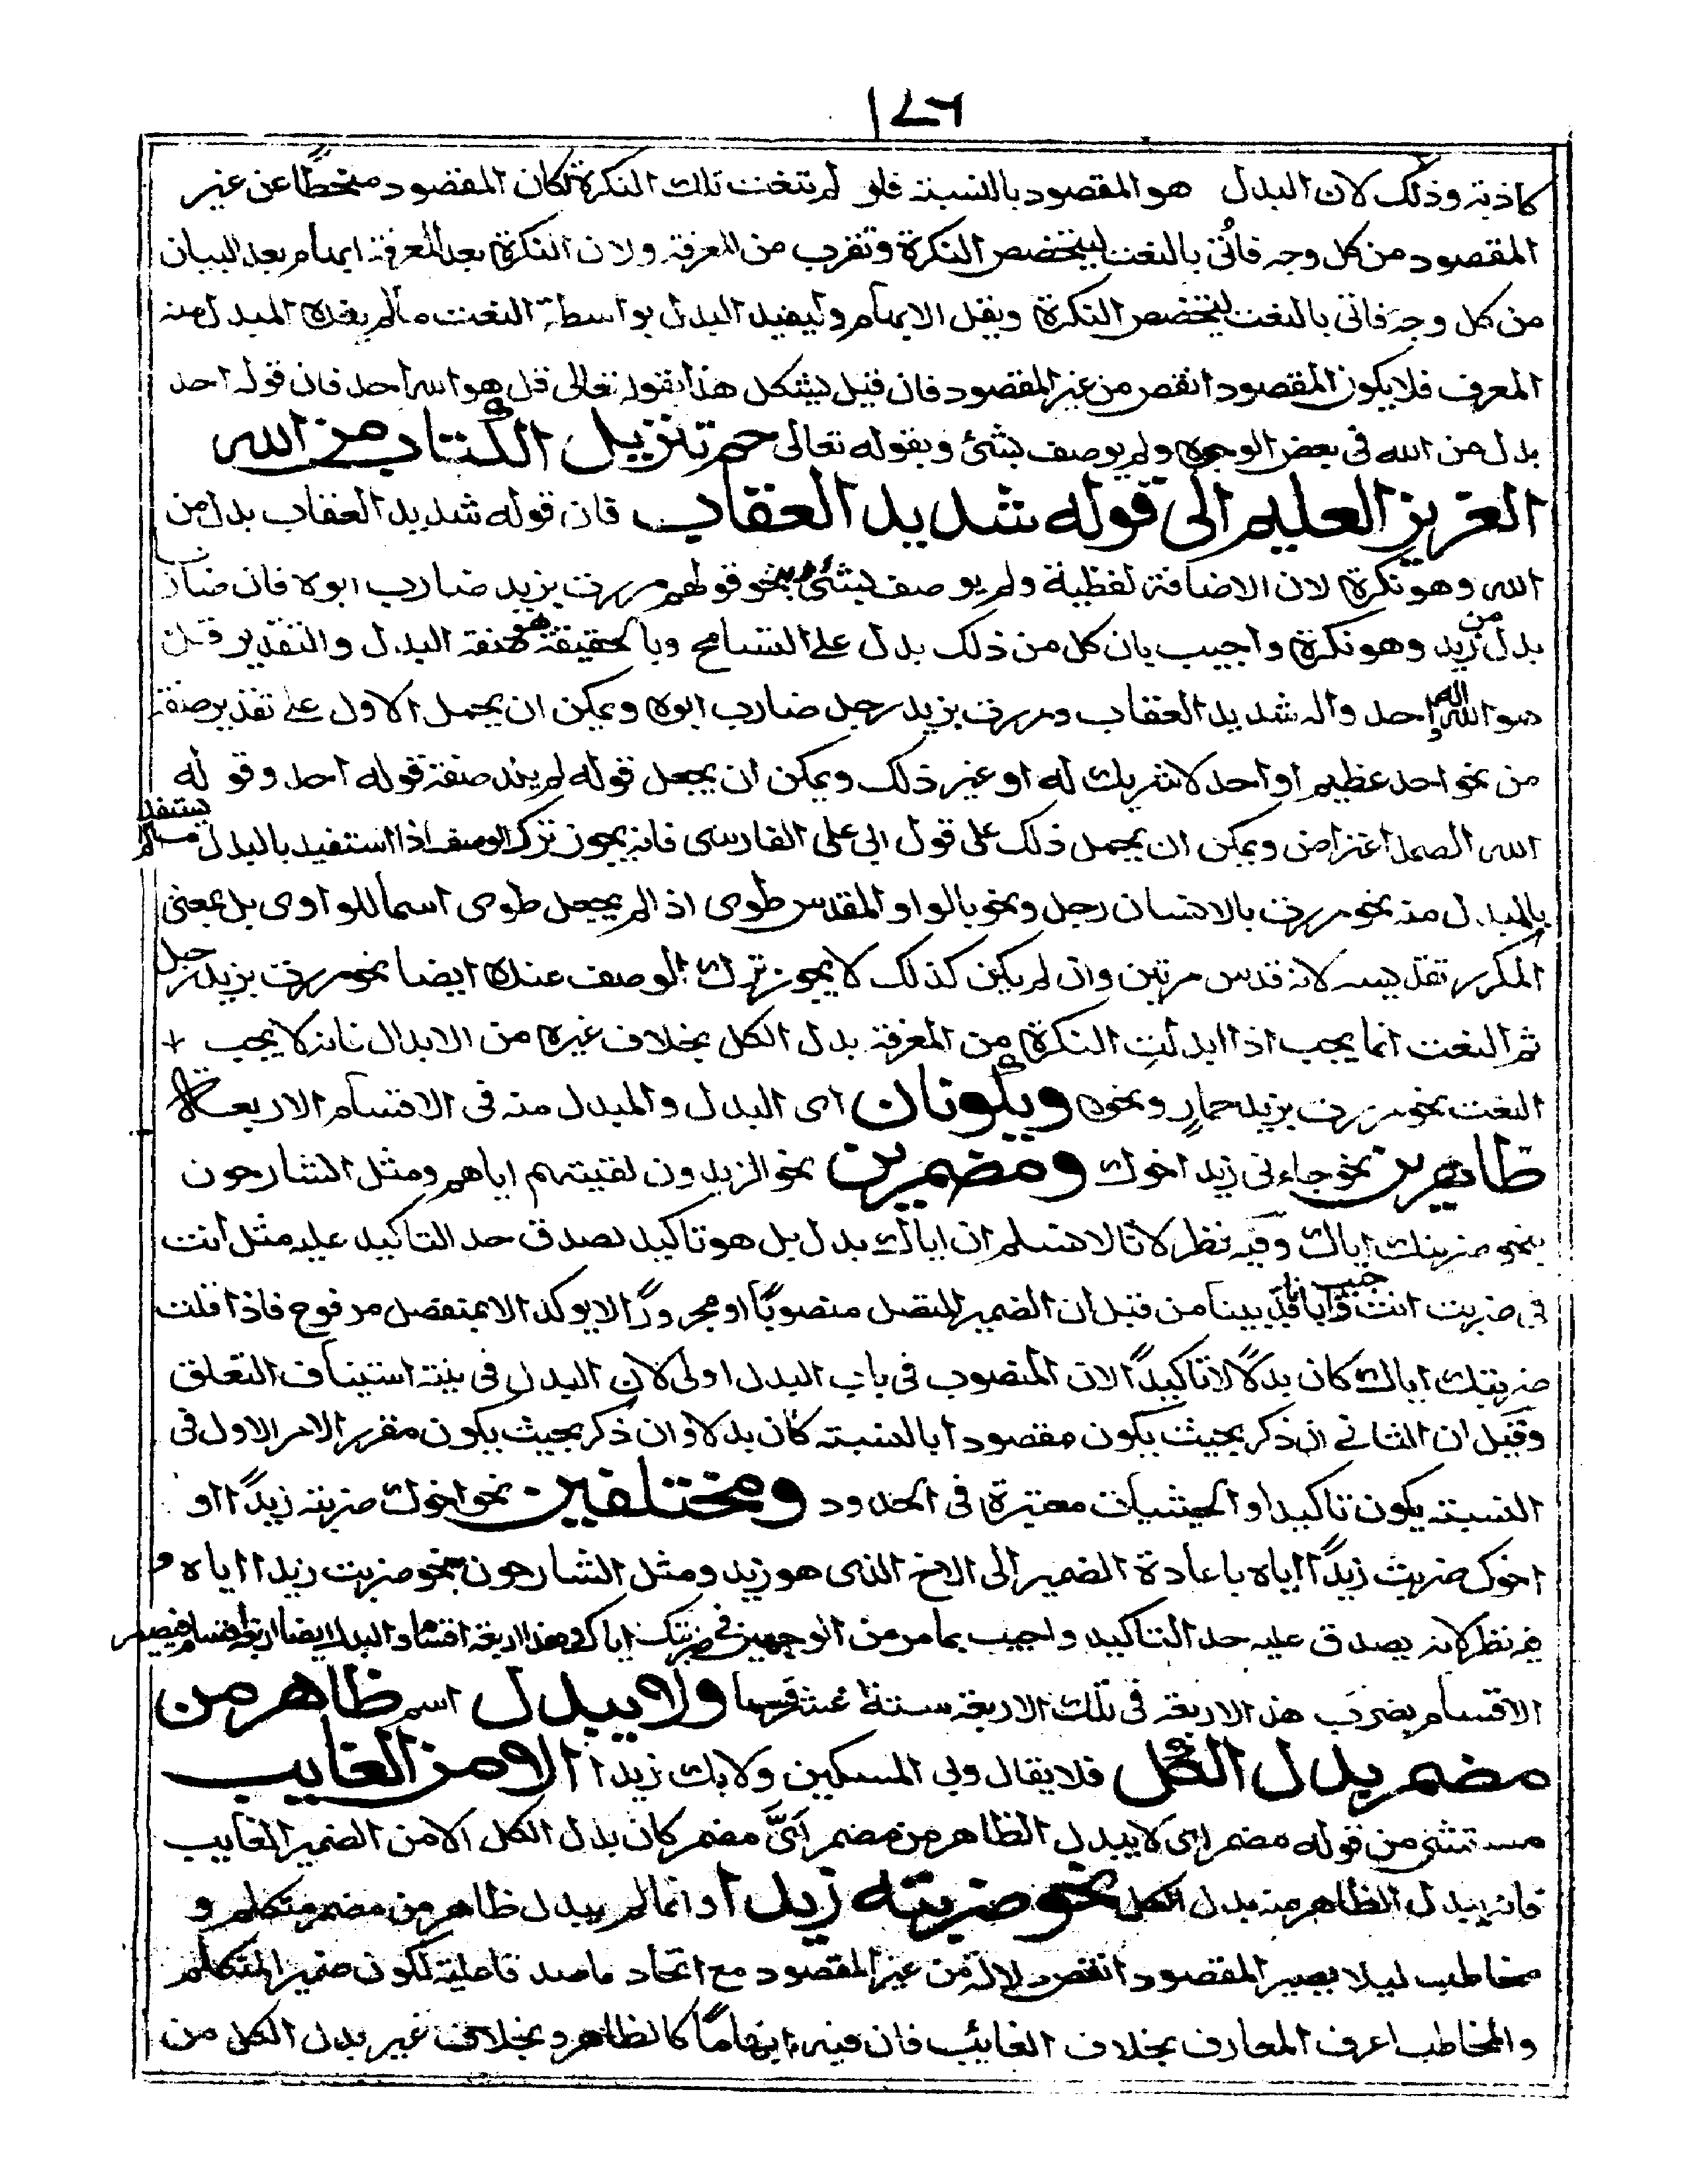 ١٧٦
كاذبة وذلك لان البدل هو المقصود بالنسبة فلو لم تنعت تلك النكرة لكان المقصود منحطًا عن غير
المقصود من كل وجه فاُتى بالنعت ليتخصص النكرة وتقرب من المعرفة ولان النكرة بعد المعرفة ابهام بعد البيان
من كل وجه فاتى بالنعت ليتخصص النكرة ويقل الابهام وليفيد البدل بواسطة النعت مالم يفده المبدل منه
المعرف فلا يكون المقصود انقص من غير المقصود فان قيل يشكل هذا بقوله تعالى قل هو الله احد فان قوله احد
بدل من الله فى بعض الوجوه ولم يوصف بشئ وبقوله تعالى حم تنزيل الكتاب من الله
العزيز العليم الى قوله شديد العقاب فان قوله شديد العقاب بدل من
الله وهو نكرة لان الاضافة لفظية ولم يوصف بشئ وبنحو قولهم مررت بزيد ضارب ابوه فان ضارب
بدل من زيد وهو نكرة واجيب بان كل من ذلك بدل على التسامح وبالحقيقة هو صفة البدل والتقدير قل
هو الله اله احد واله شديد العقاب ومررت بزيد رجل ضارب ابوه ويمكن ان يحمل الاول على تقدير صفة
من نحو احد عظيم او احد لاشريك له او غير ذلك ويمكن ان يجعل قوله لم يلد صفة قوله احد وقوله
الله الصمد اعتراض ويمكن ان يحمل ذلك على قول ابى على الفارسى فانه يجوز ترك الوصف اذا استفيد بالبدل مالم يستفد
بالمبدل منه نحو مررت بالانسان رجل ونحو بالواو المقدس طوى اذا لم يجعل طوى اسما للوادى بل بمعنى
المكرر تقديسه لانه قدس مرتين وان لم يكن كذلك لا يجوز ترك الوصف عنده ايضا نحو مررت بزيد رجل
ثم النعت انما يجب اذا ابدلت النكرة من المعرفة بدل الكل بخلاف غيره من الابدال فانه لا يجب
النعت نحو مررت بزيد حمارٍ ونحوه ويكونان اى البدل والمبدل منه فى الاقسام الاربعة
ظاهرين نحو جاءنى زيد اخوك ومضمرين نحو الزيدون لقيتهم اياهم ومثل الشارحون
بنحو ضربتك اياك وفيه نظر لانا لا نسلم ان اياك بدل بل هو تاكيد لصدق حد التاكيد عليه مثل انت
فى ضربت انت واجيب بانا قد بينا من قبل ان الضمير المتصل منصوبًا او مجرورًا لا يوكد الا بمنفصل مرفوع فاذا قلت
ضربتك اياك كان بدلًا لا تاكيدًا لان المنصوب فى باب البدل اولى لان البدل فى نية استيناف التعلق
وقيل ان الثانى ان ذكر بحيث يكون مقصودا بالنسبة كان بدلا وان ذكر بحيث يكون مقرر الامر الاول فى
النسبة يكون تاكيدا والحيثيات معتبرة فى الحدود ومختلفين نحو اخوك ضربته زيدًا او
اخوك ضربت زيدًا اياه باعادة الضمير الى الاخ الذى هو زيد ومثل الشارحون بنحو ضربت زيدا اياه و
فيه نظر لانه يصدق عليه حد التاكيد واجيب بما مر من الوجهين فى ضربتك اياك فهذا اربعة اقسام والبدل ايضا اربعة اقسام فيصير
الاقسام بضرب هذه الاربعة فى تلك الاربعة ستة عشر قسما ولا يبدل اسم ظاهر من
مضمر بدل الكل فلا يقال ولى المسكين ولا بك زيدا الا من الغايب
مستثنى من قوله مضمر اى لا يبدل الظاهر من مضمر اَىَّ مضمر كان بدل الكل الا من الضمير الغايب
فانه يبدل الظاهر منه بدل الكل نحو ضربته زيدا وانما لم يبدل ظاهر من مضمر متكلم و
مخاطب ليلا يصير المقصود انقص دلالة من غير المقصود مع اتحاد ماصدقا عليه لكون ضمير المتكلم
والمخاطب اعرف المعارف بخلاف الغائب فان فيه ابهامًا كالظاهر وبخلاف غير بدل الكل من